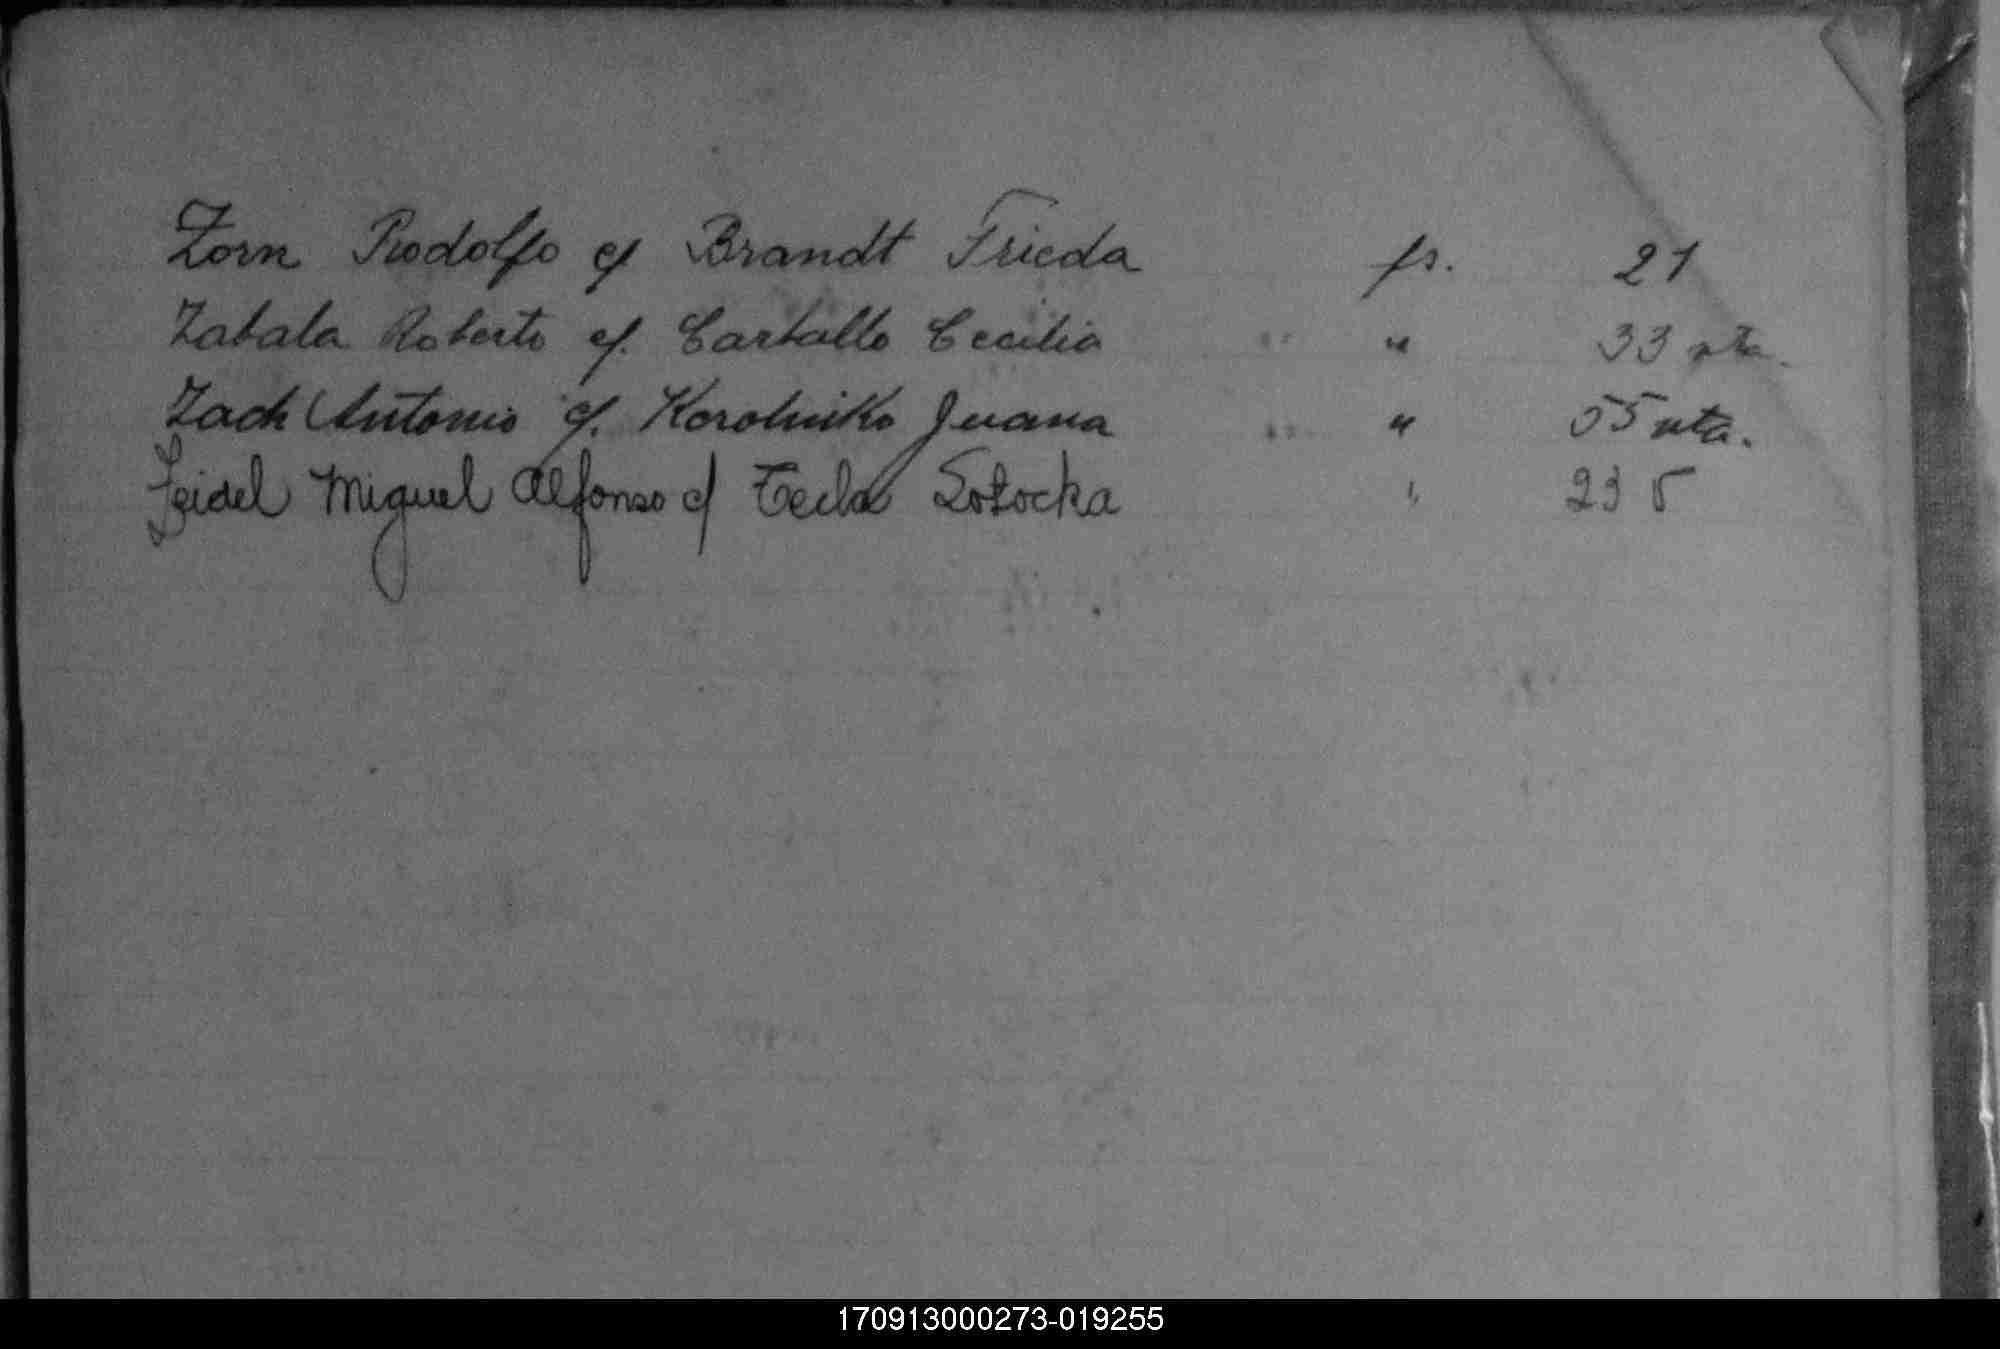 Zorn Rodolfo c/ Brandt Frieda fs. 21
Zabala Roberto c/. Carballo Cecilia " 33 vta.
Zach Antonio c/. Korolniko Juana " 55 vta.
Zeidel Miguel Alfonso c/ Tecla " 23
170913000273-019255